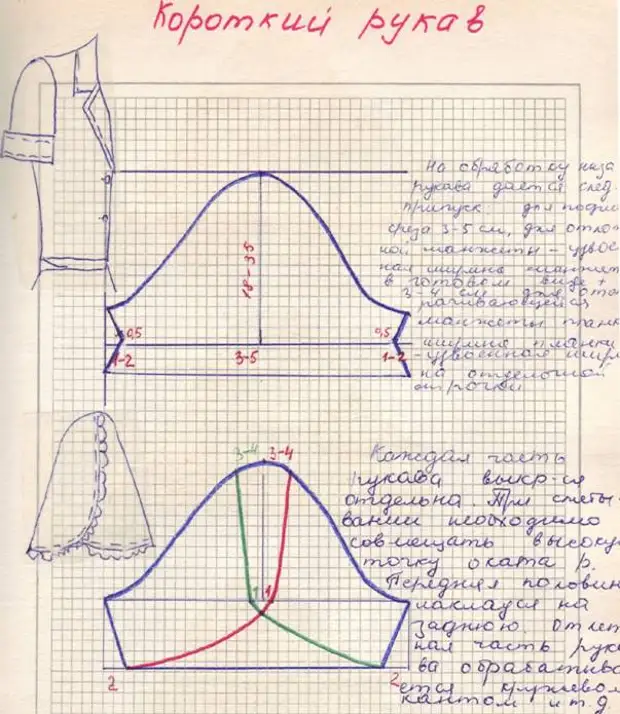 Короткий рукав
На обработку низа
рукава дается след.
припуск: для подги
среза 3-5 см, для отло
ной манжеты - удвоен
ная ширина манжет
в готовом виде +
3-4 см для ота
рачивающейся
манжеты планк
ширина планки
-удвоенная шир
на отделочной
строчки
18-35
0,5
0,5
1-2
3-5
1-2
3-4
3-4
Каждая часть
рукава выкр-ся
отдельна. При сметы-
вании необходимо
совмещать высоку
точку оката р.
Передняя половин
накладуся на
заднюю. отлет
ная часть рука
ва обрабатыва
ется кружевом
кантом и т.д.
1
1
2
2